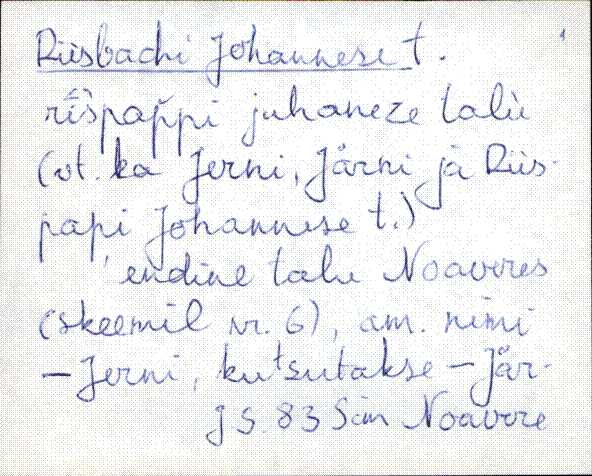 Riisbachi Johannese t. 1
rīs̀pap̆pi juhaneze talù
(vt. ka Jerni, Järni ja Riis-
papi Johannese t.)
endine talu Noaveres
(skeemil nr. 6), am. nimi
– Jerni, kutsutakse – Jär-
JS. 83 Sim Noavere